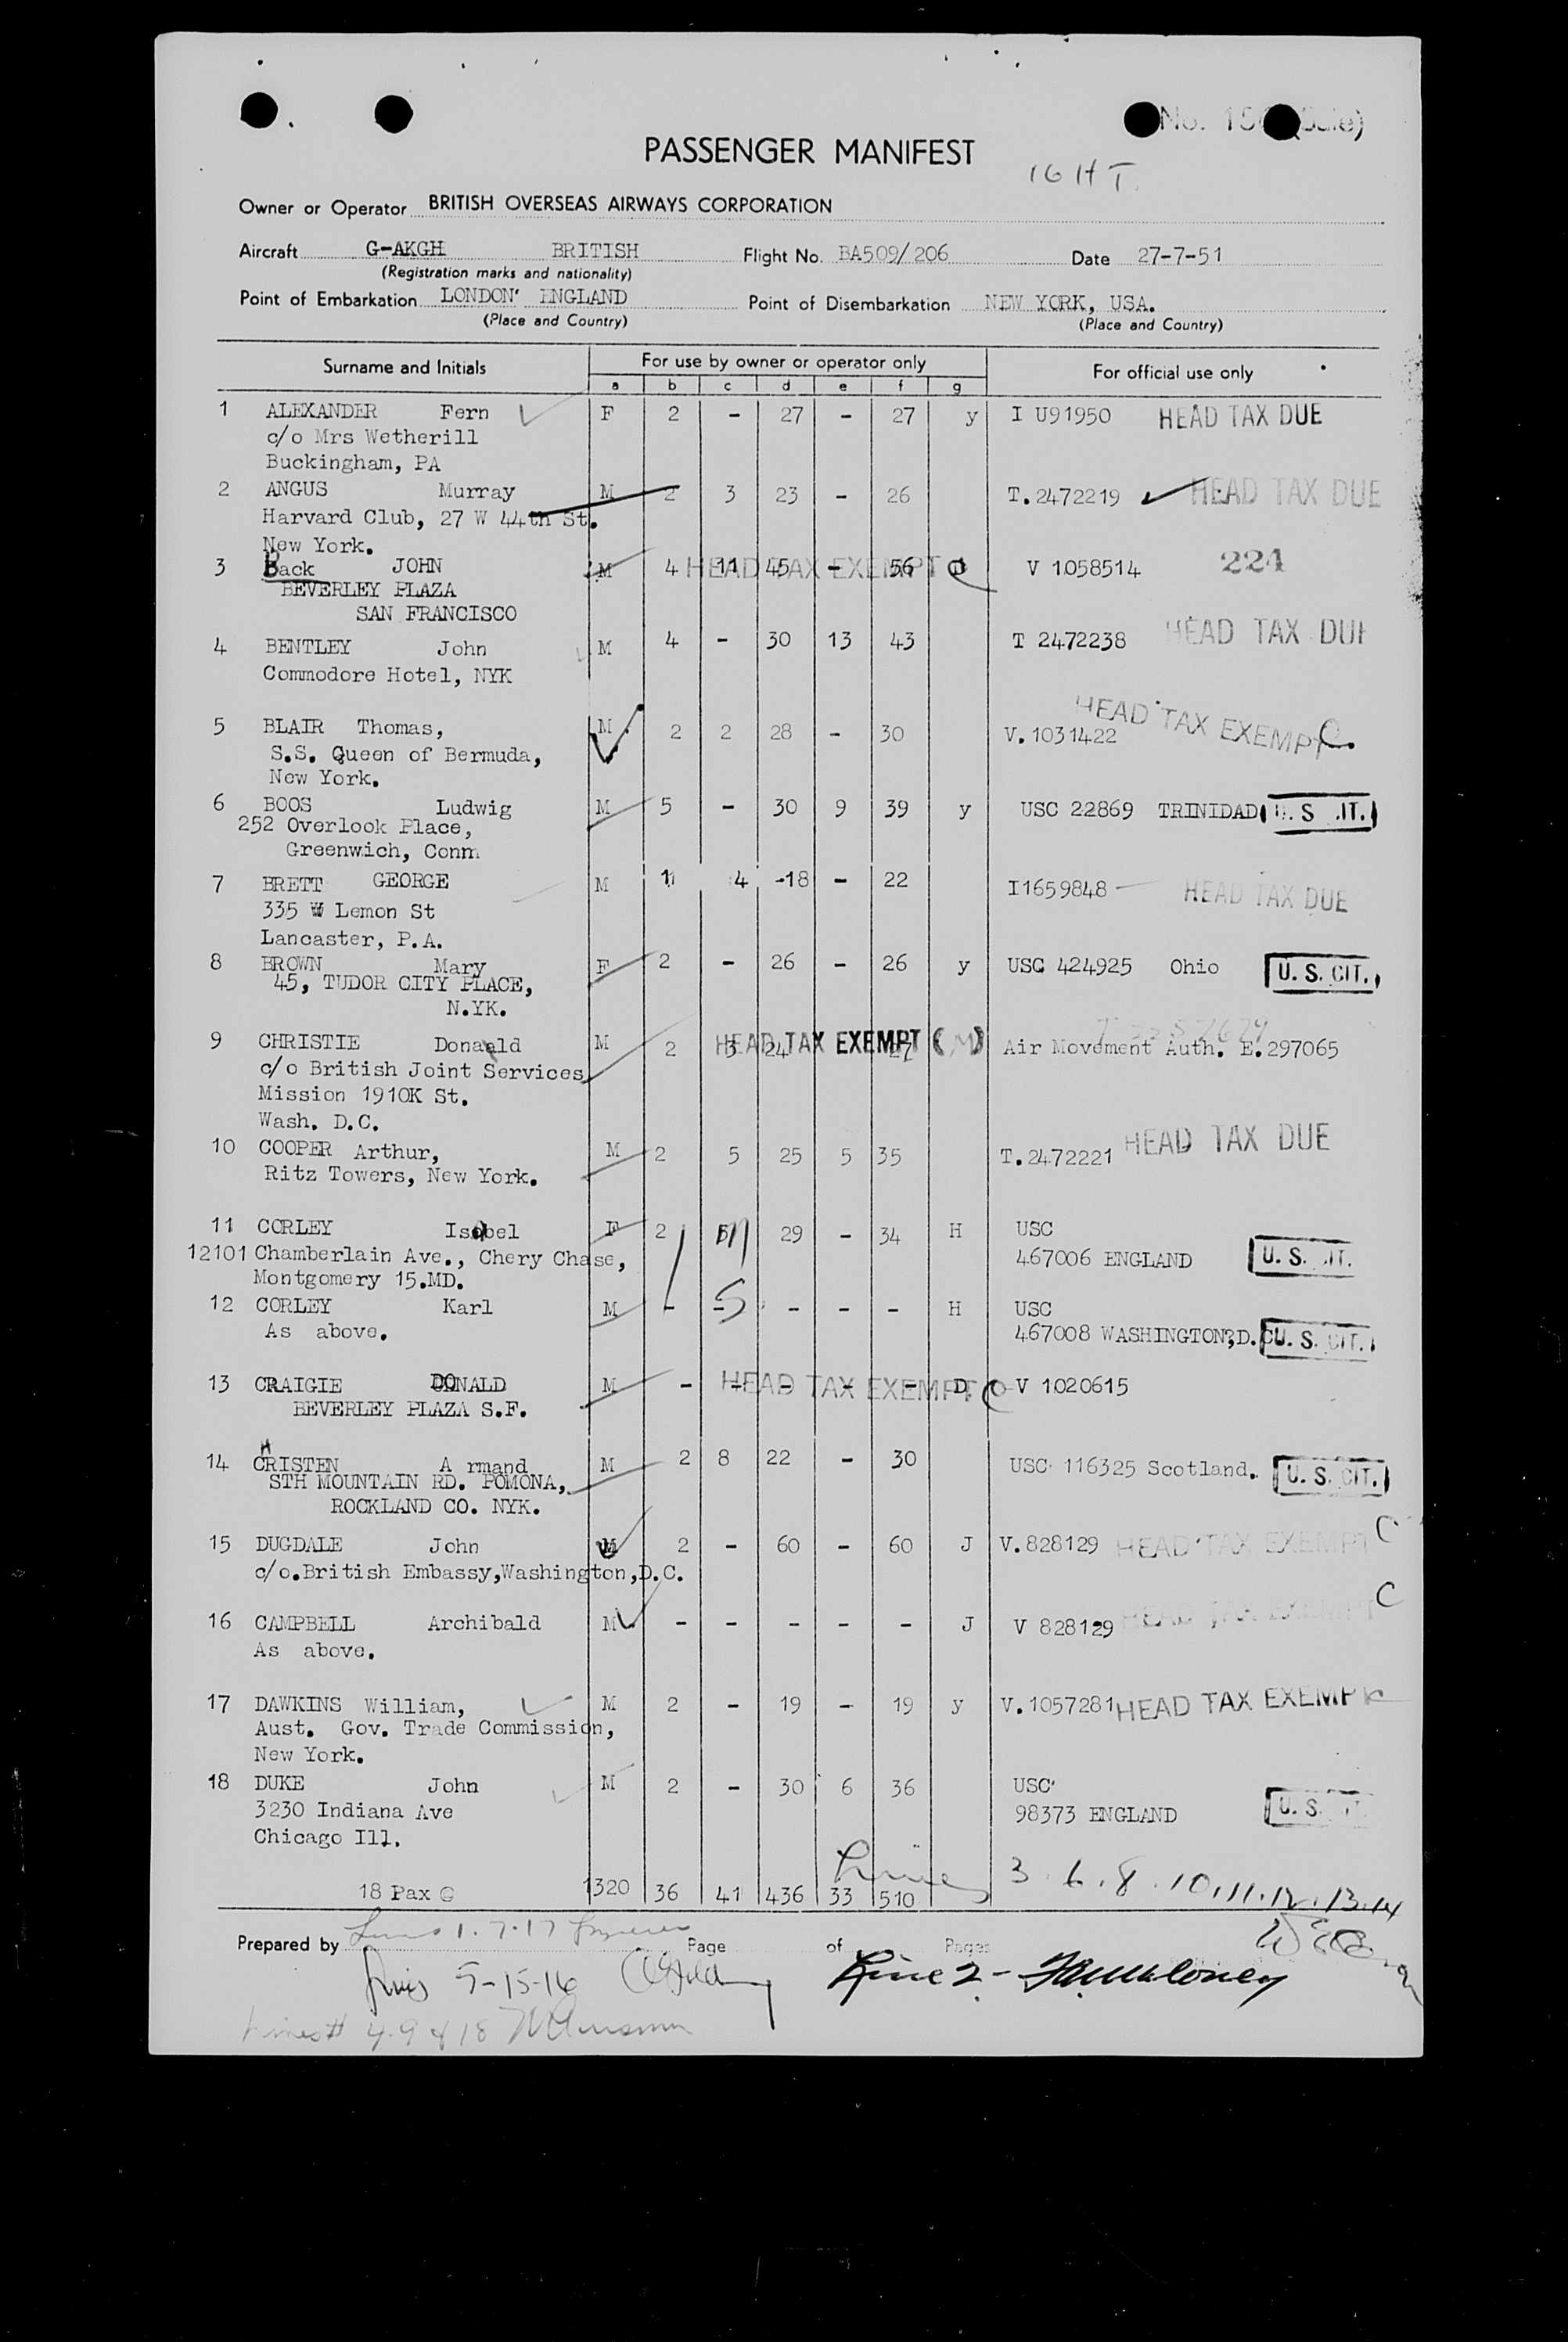 No. 15
PASSENGER MANIFEST
16 HT.
Owner or Operator BRITISH OVERSEAS AIRWAYS CORPORATION
Aircraft G-AKGH BRITISH Flight No. BA509/206 Date 27-7-51
(Registration marks and nationality)
Point of Embarkation LONDON' ENGLAND Point of Disembarkation NEW YORK, USA.
(Place and Country) (Place and Country)
Surname and Initials For use by owner or operator only For official use only
a b c d e f g
1 ALEXANDER Fern F 2 - 27 - 27 y I U91950 HEAD TAX DUE
c/o Mrs Wetherill
Buckingham, PA
2 ANGUS Murray M 2 3 23 - 26 T.2472219 HEAD TAX DUE
Harvard Club, 27 W 44th St.
New York.
3 Back JOHN M 4 11 45 - 56 D HEAD TAX EXEMPT C V 1058514 224
BEVERLEY PLAZA
SAN FRANCISCO
4 BENTLEY John M 4 - 30 13 43 T 2472238 HEAD TAX DUE
Commodore Hotel, NYK
5 BLAIR Thomas, M 2 2 28 - 30 V.1031422 HEAD TAX EXEMPT C.
S.S. Queen of Bermuda,
New York.
6 BOOS Ludwig M 5 - 30 9 39 y USC 22869 TRINIDAD U. S. CIT.
252 Overlook Place,
Greenwich, Conn
7 BRETT GEORGE M 11 4 -18 - 22 I1659848 HEAD TAX DUE
335 W Lemon St
Lancaster, P.A.
8 BROWN Mary F 2 - 26 - 26 y USC 424925 Ohio U. S. CIT.
45, TUDOR CITY PLACE,
N.YK.
9 CHRISTIE Donaald M 2 3 24 27 HEAD TAX EXEMPT (M) Air Movement Auth. E.297065
c/o British Joint Services
Mission 1910K St.
Wash. D.C.
10 COOPER Arthur, M 2 5 25 5 35 T.2472221 HEAD TAX DUE
Ritz Towers, New York.
11 CORLEY Isobel F 2 5 29 - 34 H USC
12101 Chamberlain Ave., Chery Chase, 467006 ENGLAND U. S. CIT.
Montgomery 15.MD.
12 CORLEY Karl M - - 5 - - - H USC
As above. 467008 WASHINGTON,D.C U. S. CIT.
13 CRAIGIE DONALD M - - - - - D HEAD TAX EXEMPT C V 1020615
BEVERLEY PLAZA S.F.
14 CHRISTEN A rmand M 2 8 22 - 30 USC 116325 Scotland. U. S. CIT.
STH MOUNTAIN RD. POMONA,
ROCKLAND CO. NYK.
15 DUGDALE John M 2 - 60 - 60 J V.828129 HEAD TAX EXEMPT C
c/o.British Embassy,Washington,D.C.
16 CAMPBELL Archibald M - - - - - J V 828129 HEAD TAX EXEMPT C
As above.
17 DAWKINS William, M 2 - 19 - 19 y V.1057281 HEAD TAX EXEMPT C
Aust. Gov. Trade Commission,
New York.
18 DUKE John M 2 - 30 6 36 USC
3230 Indiana Ave 98373 ENGLAND U. S.
Chicago Ill.
Lines 3.6.8.10,11.12.13.14
18 Pax G 1320 36 41 436 33 510
Prepared by Lines 1.7.17 Page of Pages
Lines 5-15-16 Line 2-
Lines# 4.9 & 18